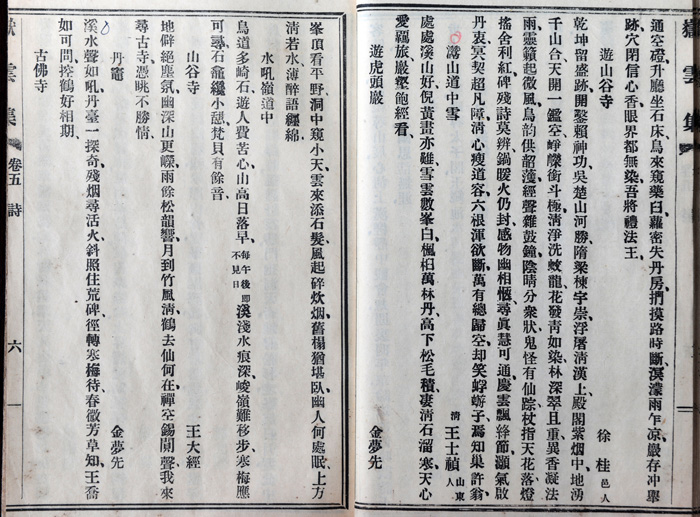 通空磴升廳坐石床鳥來窺藥臼蘿密失丹房捫摸路時斷溟濛雨乍涼巖存冲舉
跡穴閉信心香眼界都無染吾將禮法王
遊山谷寺
徐桂邑人
乾坤留盛跡開鑿賴神功吳楚山河勝隋梁棟宇崇浮屠清漢上殿閣紫烟中地湧
千山合天開一鑑空崢嶸銜斗極清淨洗蛟龍花發青如染林深翠且重異香凝法
雨靈籟起微風鳥韵供韶濩經聲雜鼓鐘陰晴分衆狀鬼怪有仙踪杖指天花落燈
搖舍利紅碑殘詩莫辨鍋暖火仍封感物幽相愜尋眞慧可通慶雲飄絳節灝氣啟
丹衷冥契超凡障清心瘦道容六根渾欲斷萬有總歸空却笑蜉蝣子焉知巢許翁
灊山道中雪
清王士禎山東人
處處溪山好倪黃畫亦難雪雲數峯白楓桕萬林丹高下松毛積凄清石溜寒天心
愛羈旅巖壑飽經看
遊虎頭巖
金夢先
峯頂看平野洞中窺小天雲來添石髮風起碎炊烟舊榻猶堪臥幽人何處眠上方
清若水薄醉語纏綿
水吼嶺道中
王大經
鳥道多崎石遊人費苦心山高日落早每午後即不見日溪淺水痕深峻嶺難移步寒梅應
可尋石龕纔小憩梵貝有餘音
山谷寺
金夢先
地僻絕塵氛幽深山更嶸雨餘松韻響月到竹風清鶴去仙何在禪空錫閴聲我來
尋古寺憑眺不勝情
丹竈
溪水聲如吼丹臺一探奇殘烟尋活火斜照住荒碑徑轉寒梅待春微芳草知王喬
如可問控鶴好相期
古佛寺
嶽雲集
卷五
詩
六
嶽雲集